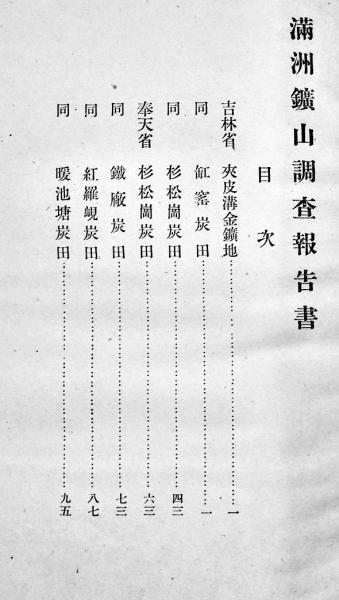 滿洲鑛山調查報告書
目次
吉林省 夾皮溝金鑛地 一
同 缸窰炭田 一
同 杉松崗炭田 四三
奉天省 杉松崗炭田 六三
同 鐵廠炭田 七三
同 紅羅峴炭田 八七
同 暖池塘炭田 九五